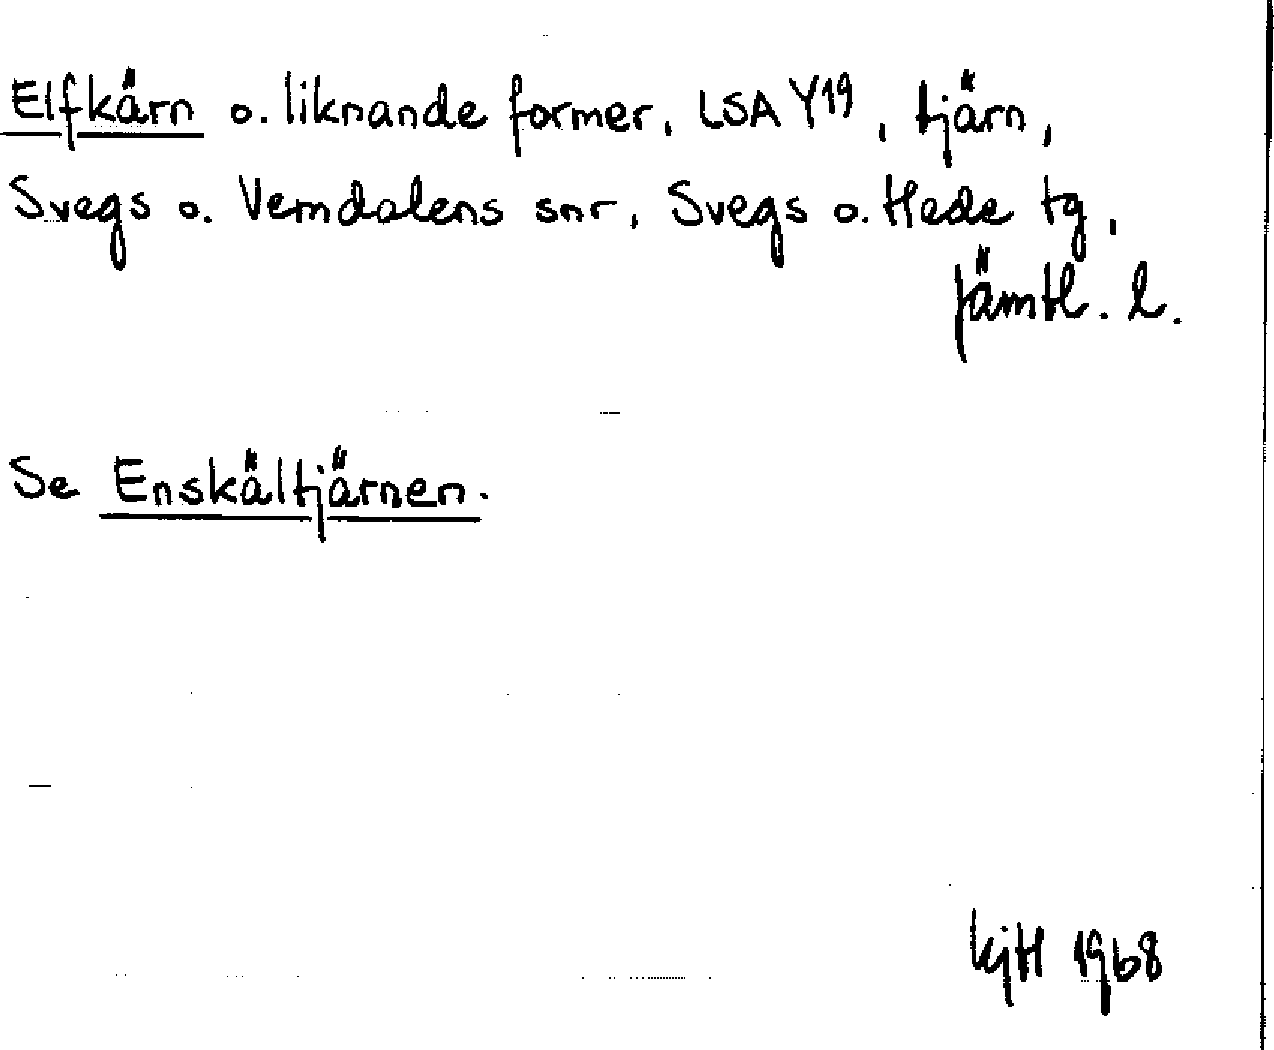 Elfkärn o. liknande former, LSA Y19, tjärn,
Svegs o. Vemdalens snr, Svegs o. Hede tg,
Jämtl. l.
Se Enskältjärnen.
KjH 1968